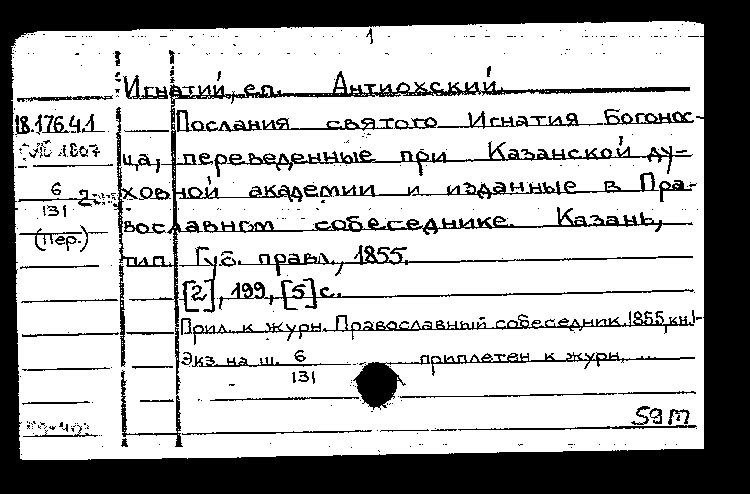 1
Игнатий, еп. Антиохский.
18.176.4.1
Послания святого Игнатия Богонос-
1807
ца, переведенные при Казанской ду=
6
131
ховной академии и изданные в Пра-
(пер.)
вославном собеседнике. Казань,
тип. Губ. правл., 1855.
[2], 199, [5] с.
Прил. к журн. Православный собеседник. 1855, кн. 1-
Экз. на ш. 6
131
приплетен к журн. ...
59М